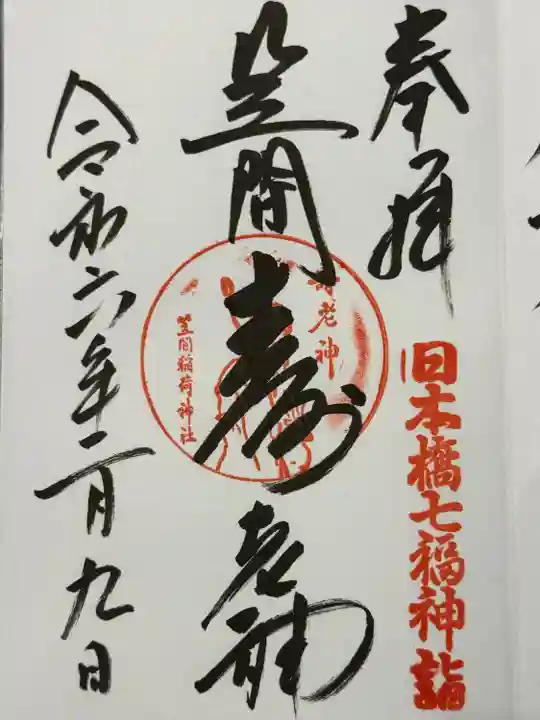 奉拝
日本橋七福神詣
笠間
寿老神
寿老神
笠間稲荷神社
令和六年二月九日